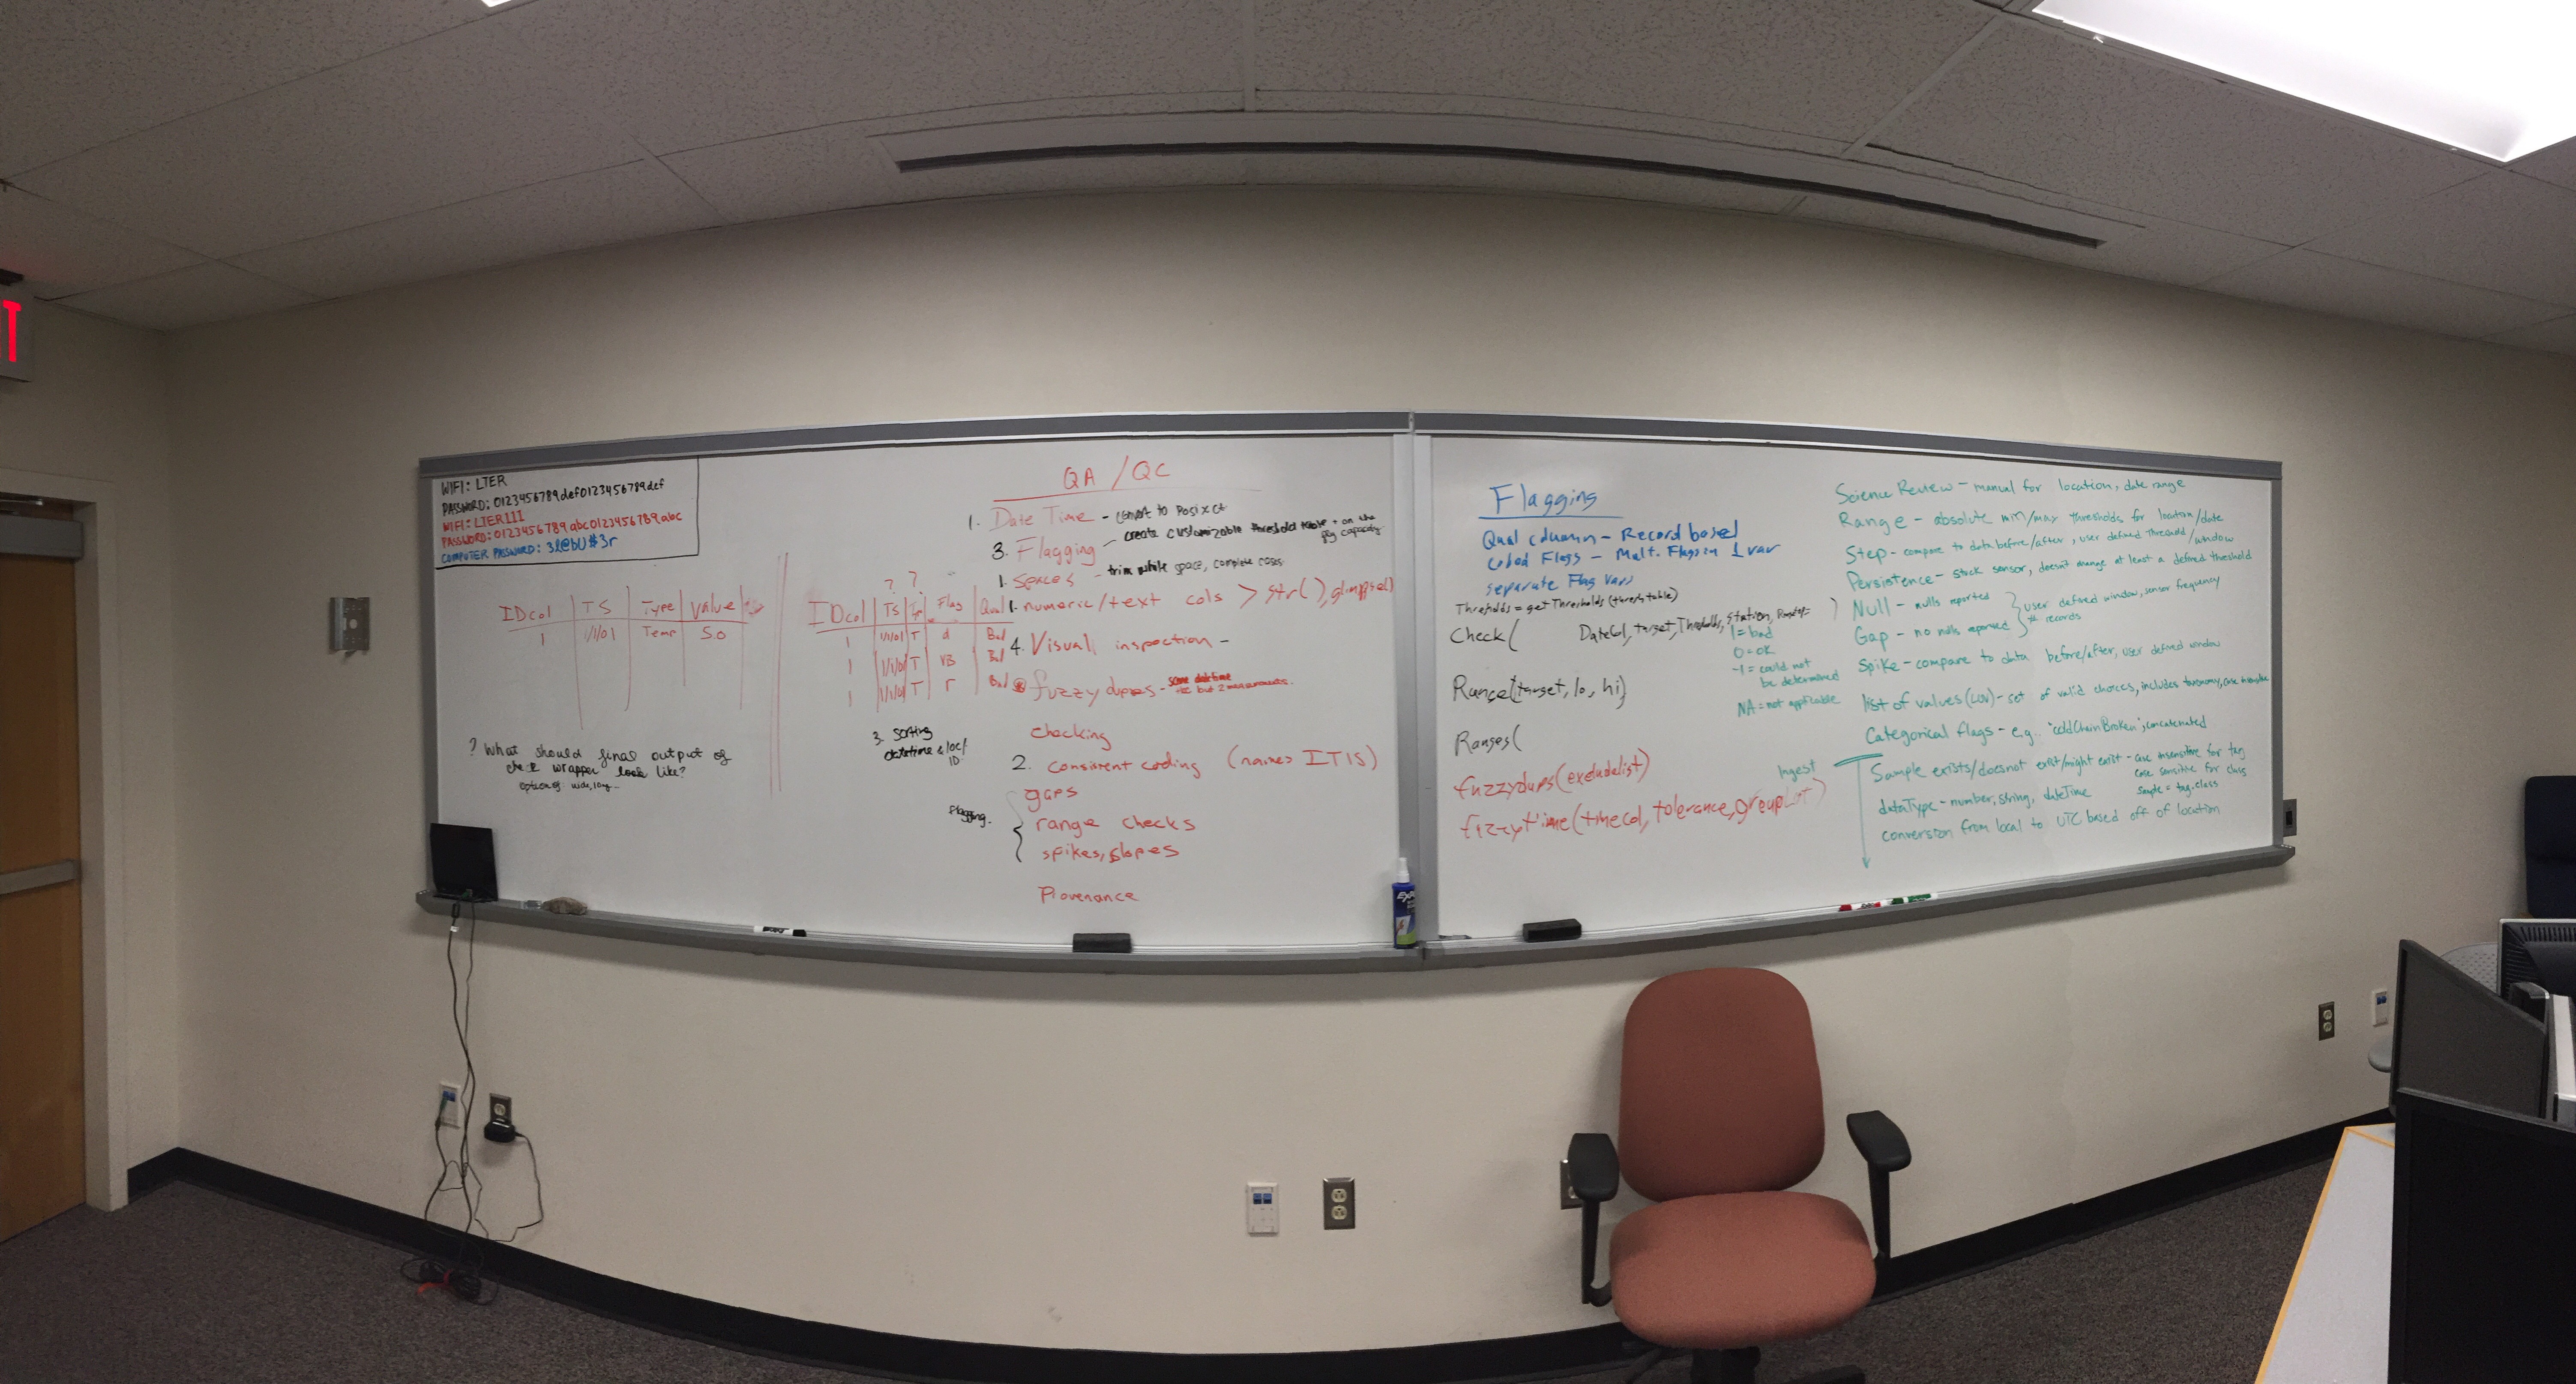 WIFI: LTER
PASSWORD: 0123456789def0123456789def
WIFI: LTER111
PASSWORD: 0123456789abc0123456789abc
COMPUTER PASSWORD: 3l@bU$3r
IDcol TS Type Value
1 1/1/01 Temp 5.0
? What should final output of
check wrapper look like?
options: wide, long...
? ?
IDcol TS Typ Flag Qual
1 1/1/01 T d Bad
1 1/1/01 T VB Bad
1 1/1/01 T r Bad
3. Sorting
datetime & loc/
ID
QA / QC
1. Date Time - convert to Posixct
3. Flagging - create customizable threshold table + on the
fly capacity
1. Spaces - trim white space, complete cases
1. numeric/text cols > str(), glimpse()
4. Visual inspection -
fuzzy dupes - same datetime
but 2 measurements.
checking
2. consistent coding (names ITIS)
flagging.
gaps
range checks
spikes, slopes
Provenance
Flagging
Qual column - Record based
coded Flags - Mult. Flags in 1 var
separate Flag vars
Thresholds = getThresholds (thresh_table)
Check( DateCol, target, Thresholds, Station, )
1 = bad
0 = ok
-1 = could not
be determined
NA = not applicable
Range(target, lo, hi)
Ranges(
fuzzydups(excludelist)
fuzzytime(timecol, tolerance, grouplist)
Science Review - manual for location, date range
Range - absolute min/max thresholds for location/date
Step - compare to data before/after, user defined threshold/window
Persistence - stuck sensor, doesn't change at least a defined threshold
Null - nulls reported
Gap - no nulls reported
user defined window, sensor frequency
# records
Spike - compare to data before/after, user defined window
list of values (LOV) - set of valid choices, includes taxonomy, case insensitive
Categorical flags - e.g. "coldChainBroken", concatenated
Ingest
Sample exists/doesnot exist/might exist - case insensitive for tag
case sensitive for class
sample = tag.class
dataType - number, string, dateTime
conversion from local to UTC based off of location